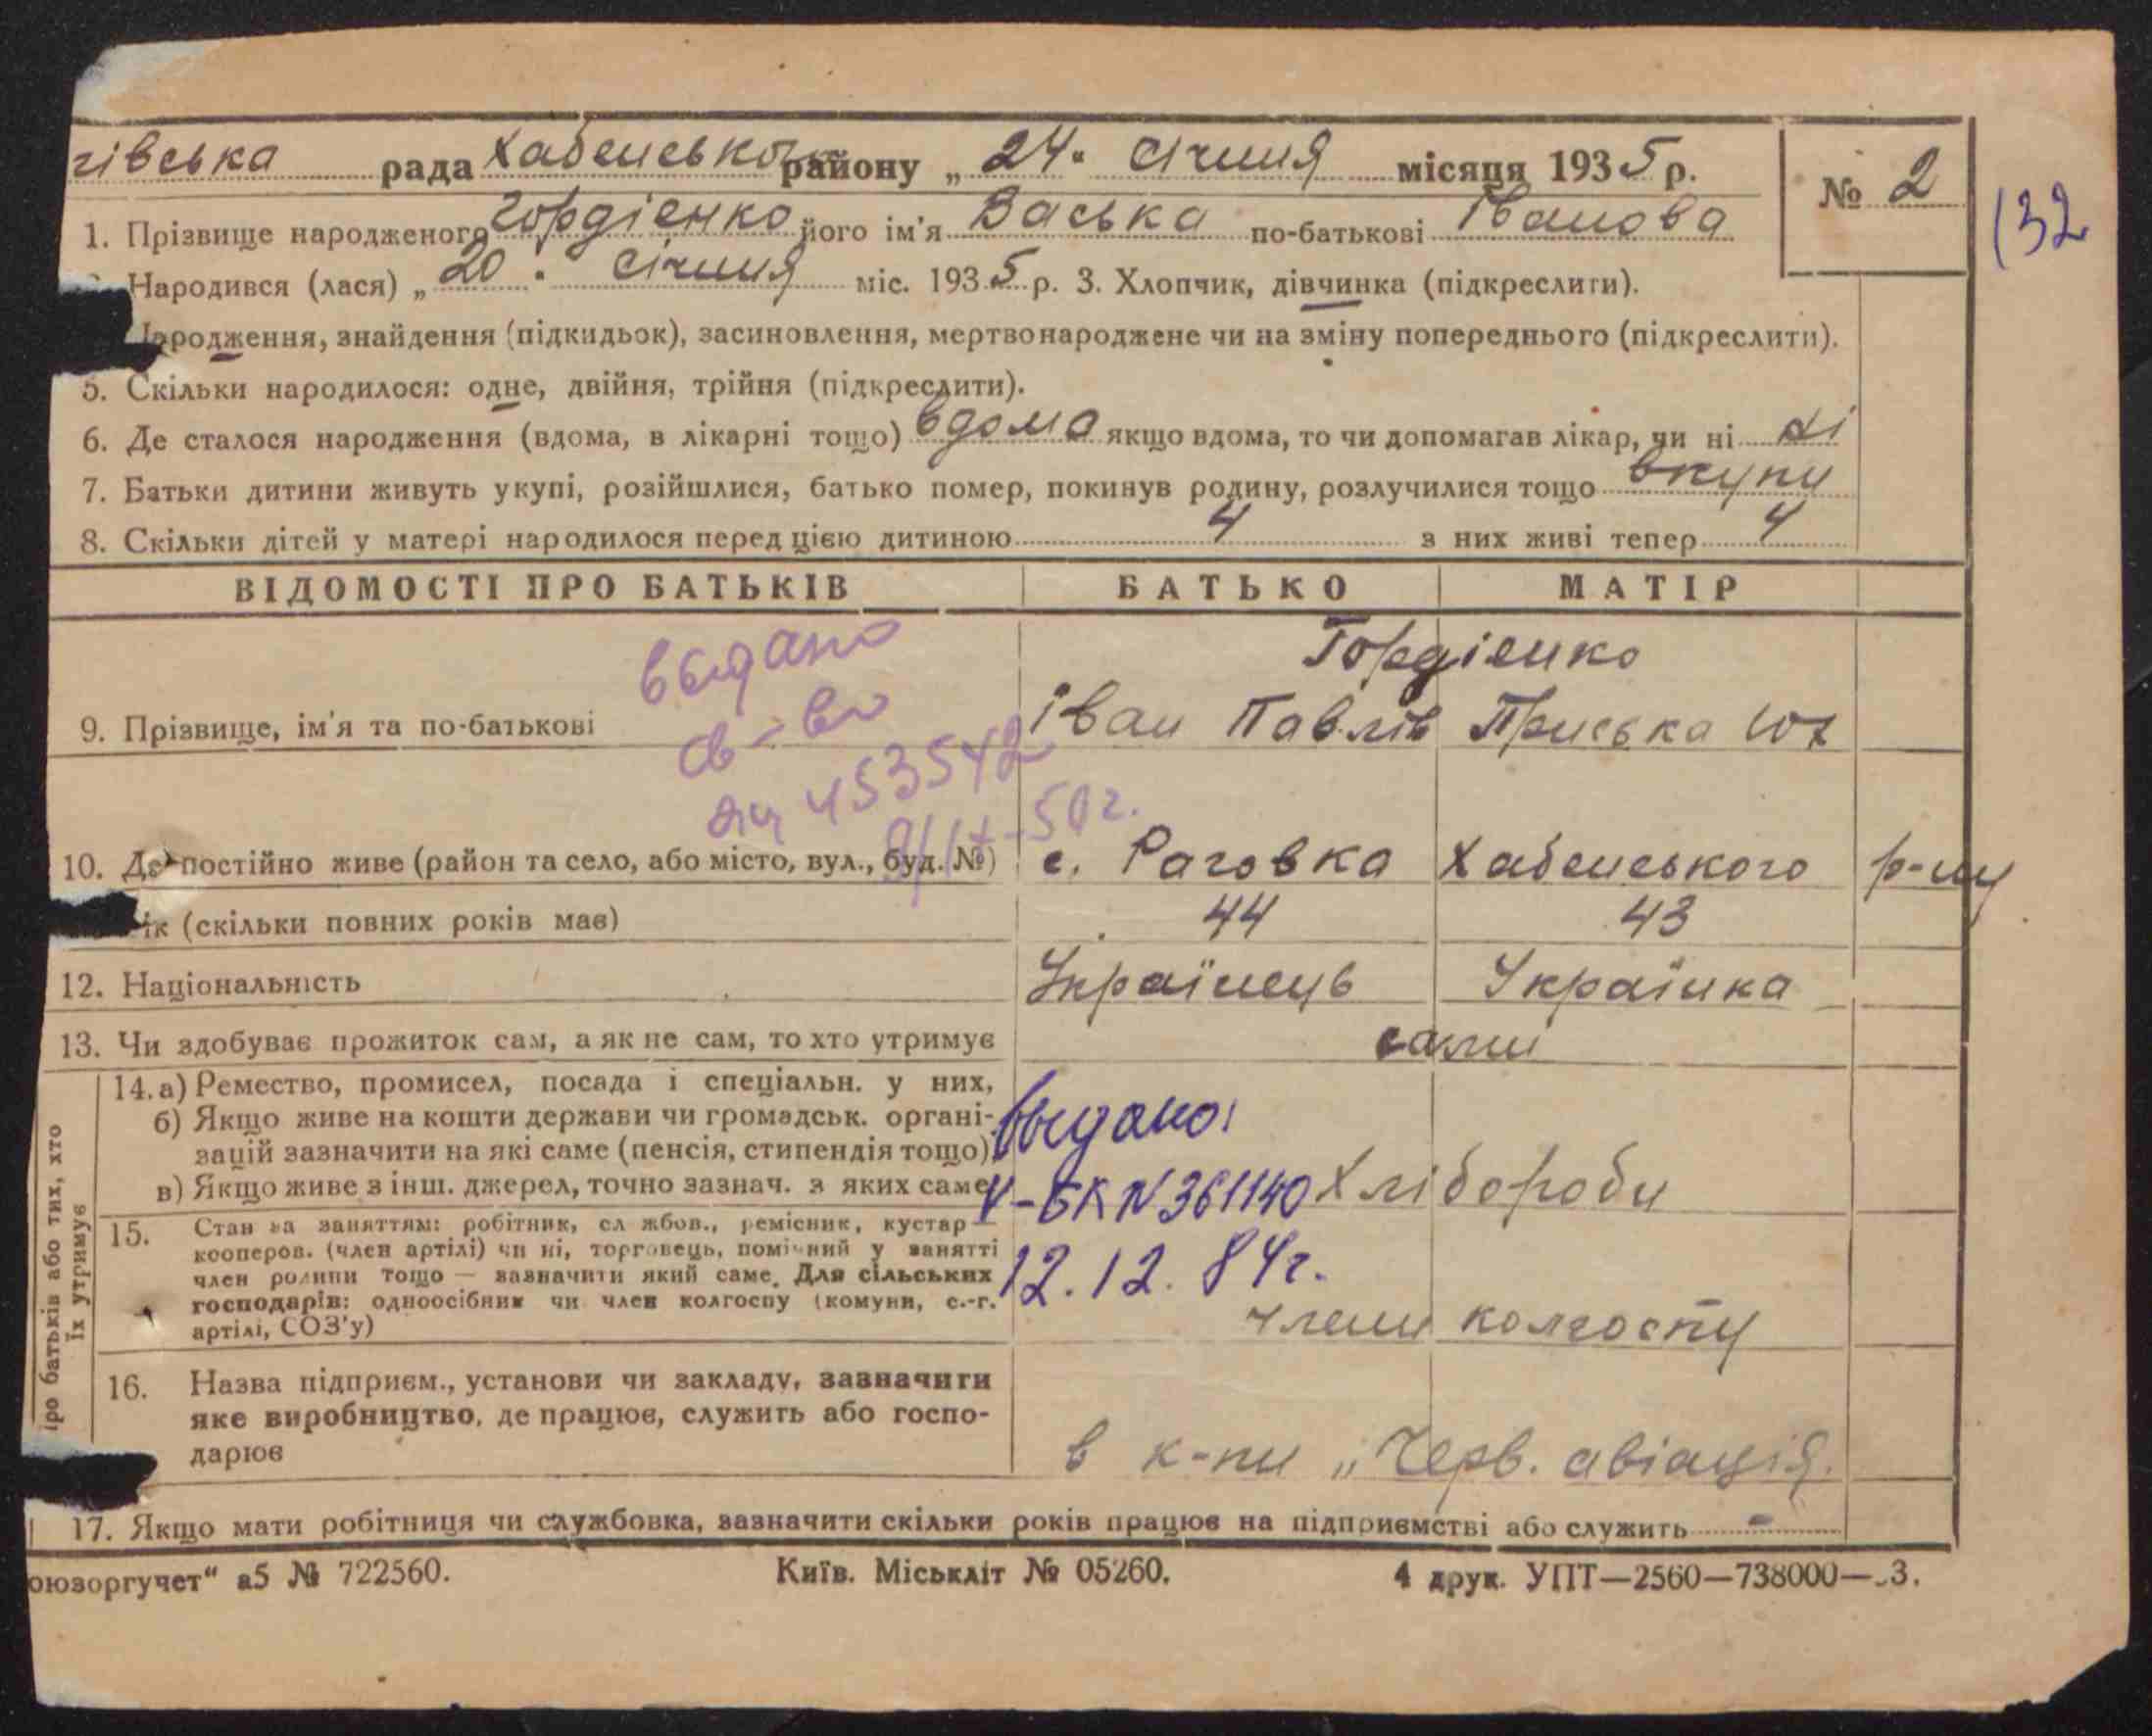 гівська рада Хабенського району „ 24 " Січния місяця 1935 р. № 2
132
1. Прізвище народженого Гордієнко його ім'я Васька по-батькові Іванова
Народився (лася) „ 20 " Січния міс. 1935 р. 3. Хлопчик, дівчинка (підкреслити).
Народження, знайдення (підкидьок), засиновлення, мертвонароджене чи на зміну попереднього (підкреслити).
5. Скільки народилося: одне, двійня, трійня (підкреслити).
6. Де сталося народження (вдома, в лікарні тощо) вдома якщо вдома, то чи допомагав лікар, чи ні ні
7. Батьки дитини живуть укупі, розійшлися, батько помер, покинув родину, розлучилися тощо вкупи
8. Скільки дітей у матері народилося перед цією дитиною 4 з них живі тепер 4
ВІДОМОСТІ ПРО БАТЬКІВ БАТЬКО МАТІР
Гордієнко
9. Прізвище, ім'я та по-батькові Іван Павлів Приська
выдано
св-во
453542
50 г.
10. Де постійно живе (район та село, або місто, вул., буд. №) с. Раговка Хабенського р-ну
ік (скільки повних років має) 44 43
12. Національність Українець Українка
13. Чи здобуває прожиток сам, а як не сам, то хто утримує сами
про батьків або тих, хто
їх утримує
14. а) Ремество, промисел, посада і спеціальн. у них,
б) Якщо живе на кошти держави чи громадськ. органі-
зацій зазначити на які саме (пенсія, стипендія тощо)
в) Якщо живе з інш. джерел, точно зазнач. з яких саме Хлібороби
выдано:
V-БК N 361140
12.12.84г.
15. Стан за заняттям: робітник, сл жбов., ремісник, кустар —
кооперов. (член артілі) чи ні, торговець, помічний у занятті
член родини тощо — зазначити який саме. Для сільських
господарів: одноосібник чи член колгоспу (комуни, с.-г.
артілі, СОЗ'у) члени колгоспу
16. Назва підприєм., установи чи закладу, зазначити
яке виробництво, де працює, служить або госпо-
дарює в к-пи „Черв. авіація.
17. Якщо мати робітниця чи службовка, зазначити скільки років працює на підприємстві або служить -
оюзоргучет" а5 № 722560. Київ. Міськліт № 05260. 4 друк. УПТ—2560—738000— 3.